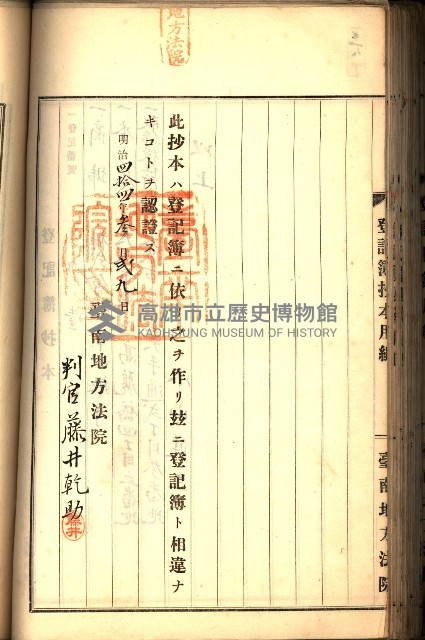 地方法院
登記簿抄本用紙
臺南地方法院
此抄本ハ登記簿ニ依リ之ヲ作リ玆ニ登記簿ト相違ナ
キコトヲ認證ス
明治四拾四年叁月弍九日
臺南地方法院
判官藤井乾助
藤井
高雄市立歷史博物館
KAOHSIUNG MUSEUM OF HISTORY
登記簿抄本